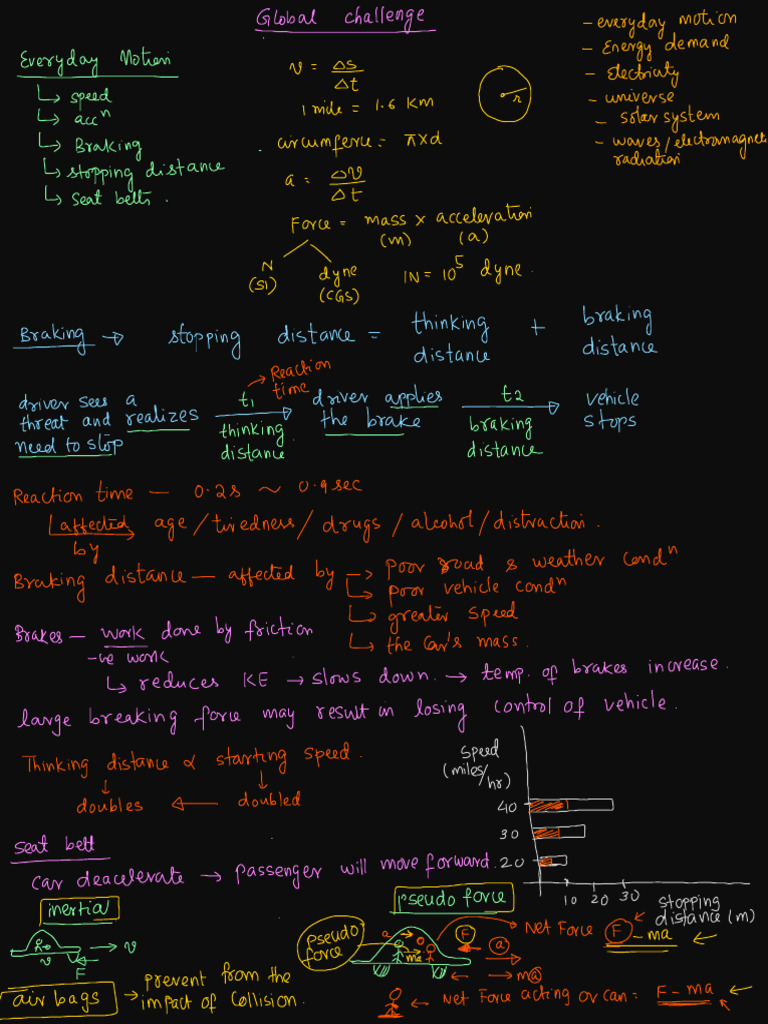 Global challenge
- everyday motion
- Energy demand
- Electricity
- universe
- solar system
- waves/electromagnetic
radiation
Everyday Motion
speed
accⁿ
Braking
stopping distance
Seat belts.
v = Δs/Δt
1 mile = 1.6 km
r
circumferce = π×d
a = Δv/Δt
Force = mass × acceleration
(m) (a)
N
(SI)
dyne
(CGS)
1N = 10⁵ dyne.
Braking → stopping distance = thinking distance + braking distance
driver sees a
threat and realizes
need to stop
t₁ → Reaction time
thinking
distance
driver applies
the brake
t₂
braking
distance
vehicle
stops
Reaction time — 0.2s ~ 0.9sec
affected by age/tiredness/drugs/alcohol/distraction.
Braking distance — affected by → poor road & weather condⁿ
poor vehicle condⁿ
greater speed
the car's mass.
Brakes — work done by friction
-ve work
reduces KE → slows down. → temp. of brakes increase.
large breaking force may result in losing control of vehicle.
Thinking distance α starting speed.
doubles ← doubled
speed
(miles/
hr)
40
30
20
10 20 30
stopping
distance (m)
Seat belt
car deacelerate → passenger will move forward.
inertial
pseudo force
v
v
F
pseudo
force
a
ma
F
a
Net Force F - ma
→ ma
Net Force acting or can = F - ma
air bags → prevent from the
impact of collision.